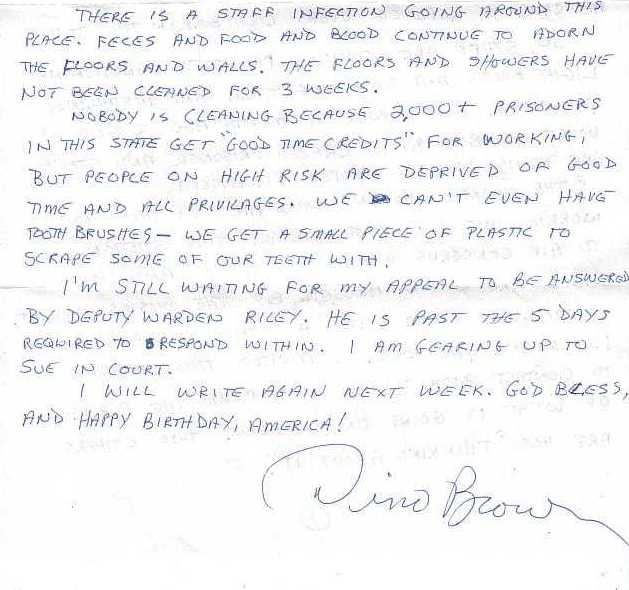 THERE IS A STAFF INFECTION GOING AROUND THIS
PLACE. FECES AND FOOD AND BLOOD CONTINUE TO ADORN
THE FLOORS AND WALLS. THE FLOORS AND SHOWERS HAVE
NOT BEEN CLEANED FOR 3 WEEKS.
NOBODY IS CLEANING BECAUSE 2,000+ PRISONERS
IN THIS STATE GET "GOOD TIME CREDITS" FOR WORKING,
BUT PEOPLE ON HIGH RISK ARE DEPRIVED OF GOOD
TIME AND ALL PRIVILAGES. WE CAN'T EVEN HAVE
TOOTH BRUSHES — WE GET A SMALL PIECE OF PLASTIC TO
SCRAPE SOME OF OUR TEETH WITH.
I'M STILL WAITING FOR MY APPEAL TO BE ANSWERED
BY DEPUTY WARDEN RILEY. HE IS PAST THE 5 DAYS
REQUIRED TO RESPOND WITHIN. I AM GEARING UP TO
SUE IN COURT.
I WILL WRITE AGAIN NEXT WEEK. GOD BLESS,
AND HAPPY BIRTHDAY, AMERICA!
Dino Brown